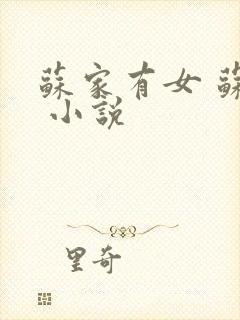 蘇家有女 蘇
小說
里奇